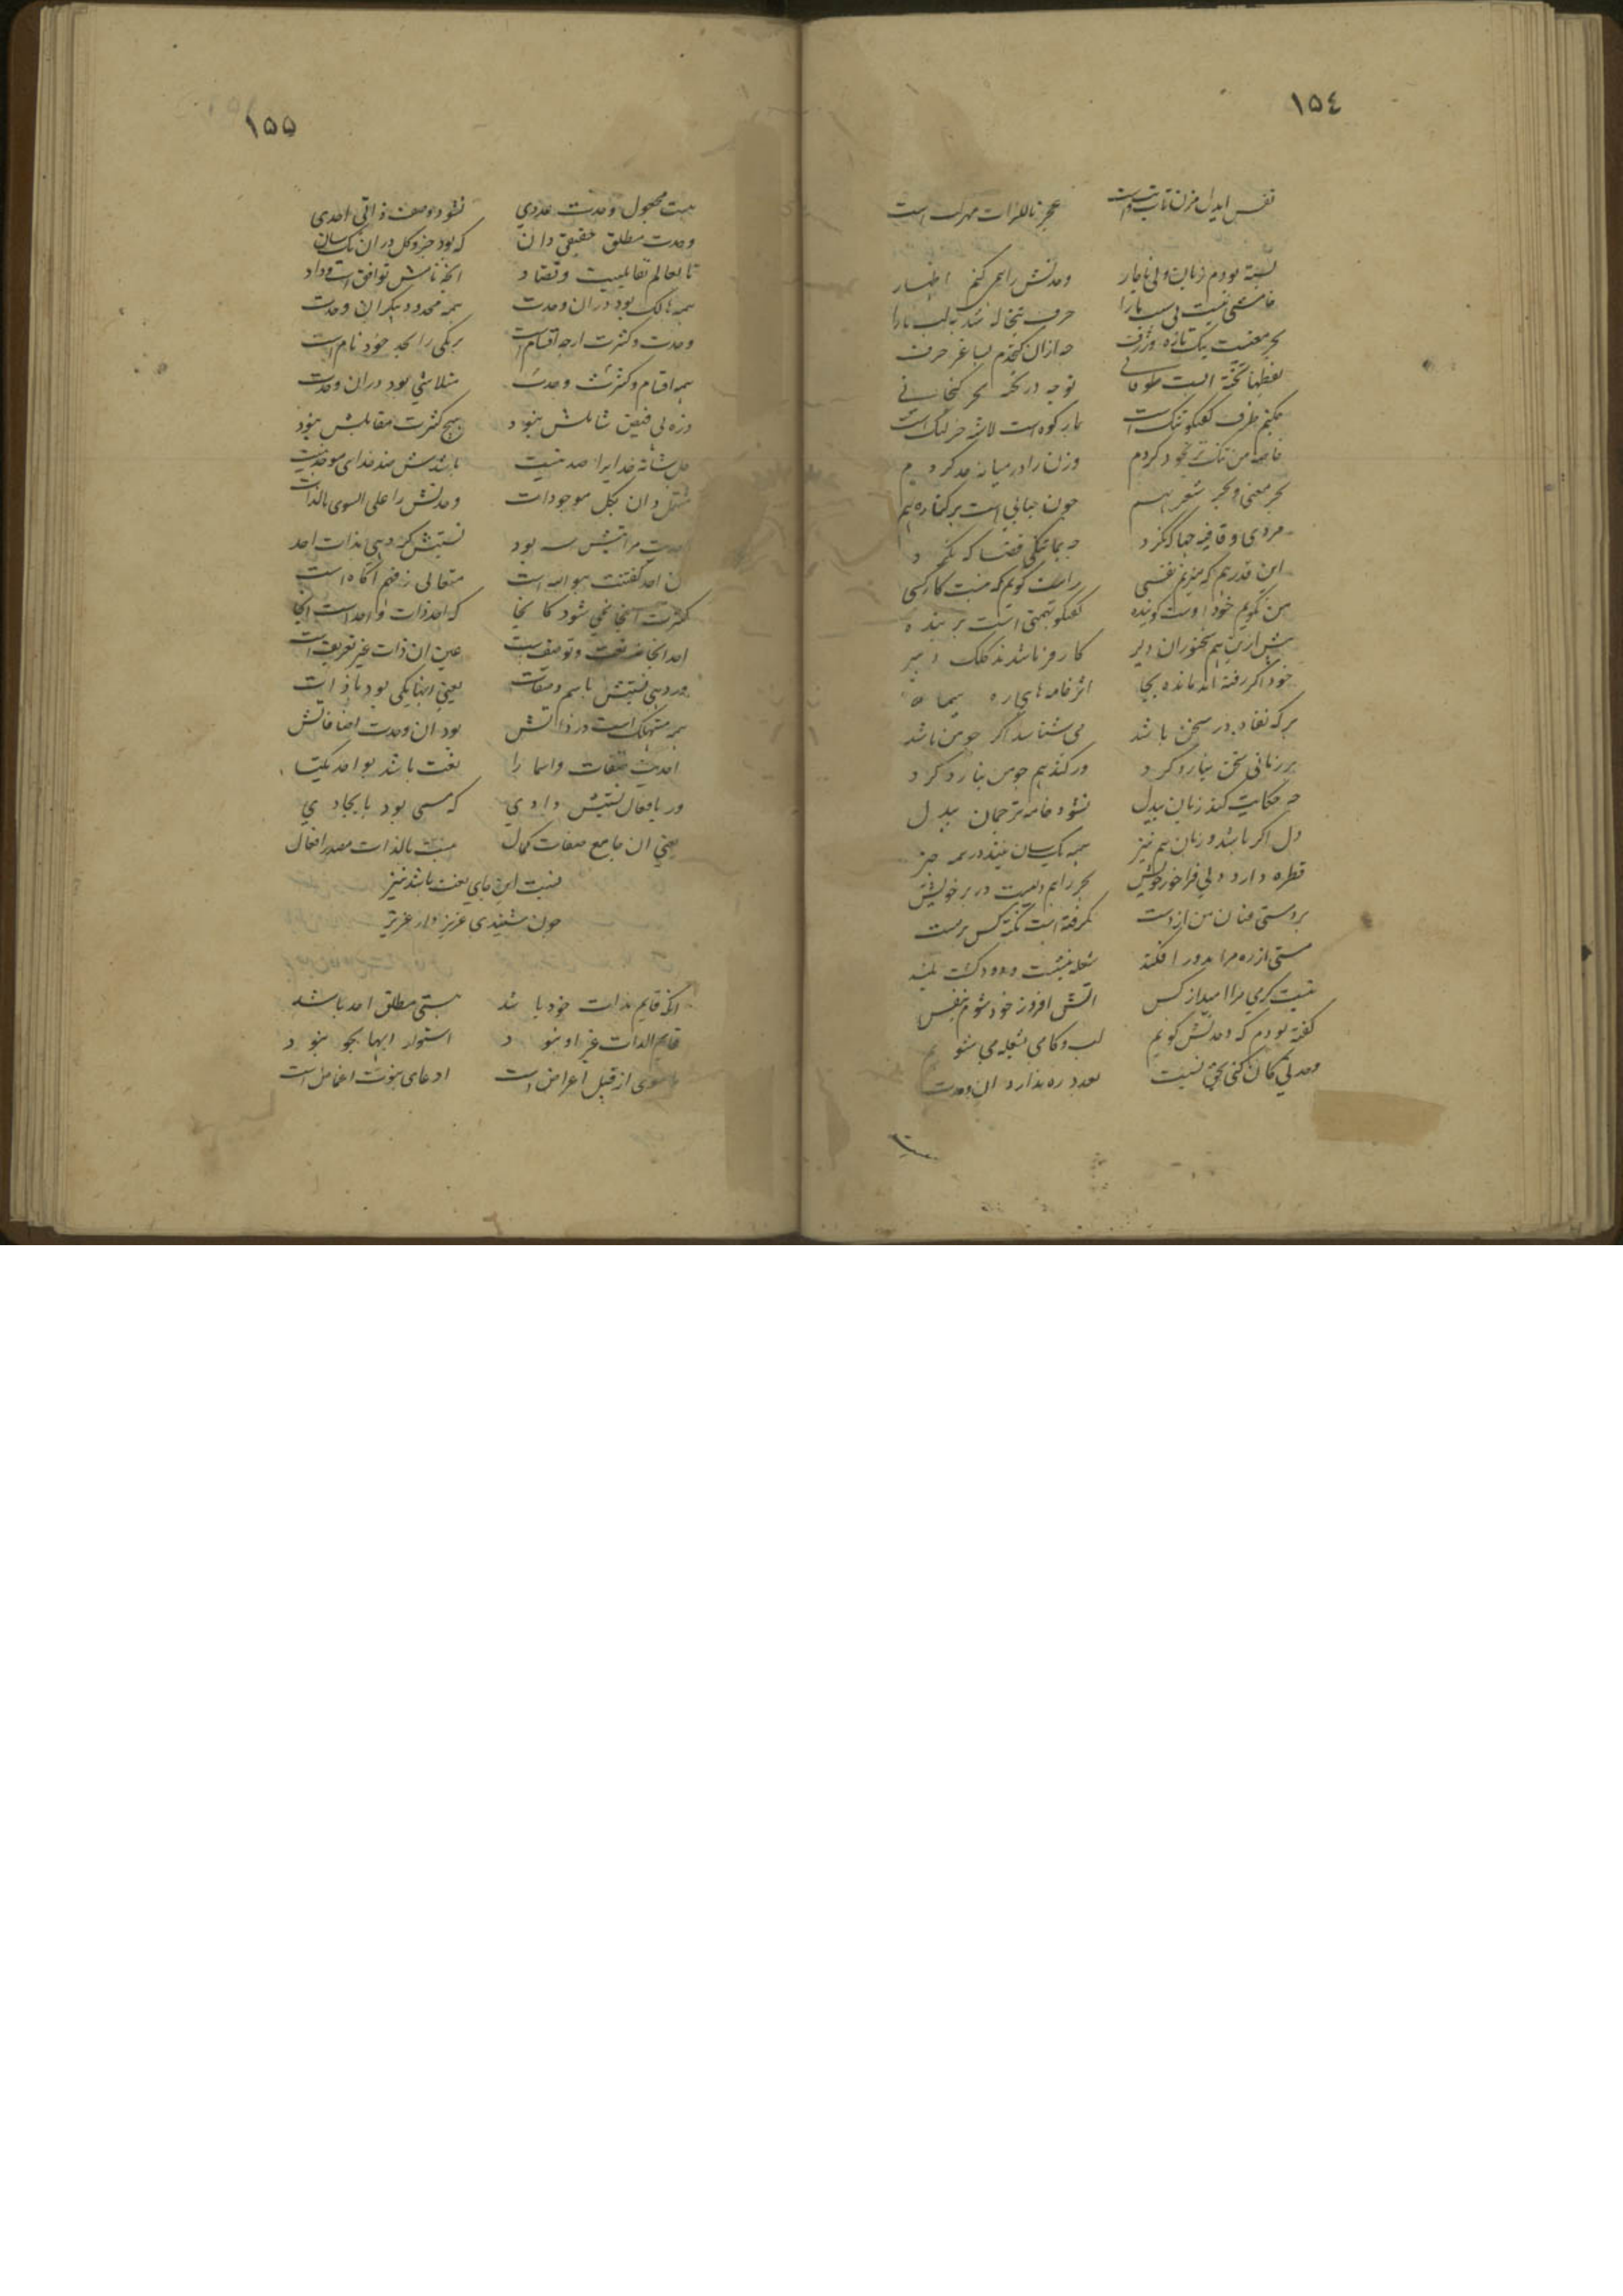 ١٥٤
نفس ایدل مزن عجز ناللزات مدرکست
بسته بودم زبان ولی ناچار وحدتش را هم کنم اظهار
خامشی نیست بی سبب ما را حرف تبخاله شد بلب ما را
بحر معنیست یک تازه و ژرف چه ازان گنجدم بساغر حرف
لفظها تخته ایست طوفانی توچه در تخته بحر گنجانی
چکنم ظرف گفتگو تنک است بار کوه است لاشه خر لنگ است
خاصه من تنک تر خود کردم وزن را در میانه حد کردم
بحر معنی و بحر شعر بهم چون حبابی است بر کناره یم
مردی و قافیه چها گذرد چه بماتنکی فضا که نکرد
این قدر هم که میزنم نفسی راست گویم که نیست کار کسی
من نگویم خود اوست گوینده گفتگو تهمتی است بر بنده
پیش ازین هم سخنوران دلیر کارفرما شدند کلک دبیر
خود اگر رفته اند مانده بجا اثر خامه های ره پیما
هر که نقاد در سخن باشد می شناسد اگر چو من باشد
بر زبانی سخن نیارد کرد ور کند هم چو من نیارد کرد
چه حکایت کند زبان بیدل نشود خامه ترجمان بیدل
دل اگر باشد و زبان هم نیز همه یکسان نیند در همه چیز
قطره دارد دلی فراخور خویش بحر را هم دلیست در بر خویش
بر دستی عنان من از دست نگرفته است نکته کس بر مست
مستی از ره مرا بدور افکند شعله بنشست و دود گشت بلند
نیست گرمی مرا امید از کس آتش افروز خود شوم بنفس
گفته بودم که وحدتش گویم لب و کامی بشعله می شویم
وحدتی کان کنی بحق نسبت بعدد ره ندارد آن وحدت
١٥٥
هست محمول وحدت عددی نشود وصف ذاتی احدی
وحدت مطلق حقیقی دان که بود جزو کل دران یکسان
تا بعالم تقابلیت و تضاد آنچه نامش توافق است و وداد
همه هالک بود دران وحدت همه محدود بیکران وحدت
وحدت و کثرت ارچه اقسام است هر یکی را بحد خود نام است
همه اقسام کثرت و وحدت متلاشی بود دران وحدت
ذره بی فیض شاملش نبود هیچ کثرت مقابلش نبود
جل شانه خدایرا ضد نیست باشدش ضد خدای موجد نیست
مشتمل دان بکل موجودات وحدتش را علی السوی بالذات
مراتبش سه بود نسبتش گر دهی بذات احد
احد گفتنت هو الله است متعالی ز فهم آگاه است
کثرت اینجا نمی شود گنجا که احد ذات واحد است اینجا
احد اینجا نه نعت و توصیف است عین آن ذات غیر تعریف است
ور دهی نسبتش باسم و صفات یعنی اینها یکی بود با ذات
همه مستهلک است در ذاتش بود آن وحدت اضافاتش
احدیت صفات و اسما را نعت باشد بواحد یکتا
ور بافعال نسبتش دادی که مسمی بود بایجادی
یعنی آن جامع صفات کمال هست بالذات مصدر افعال
نسبت این جای نعت باشد نیز
چون شنیدی عزیز دار عزیز
آنکه قایم بذات خود باشد هستی مطلق احد باشد
قایم الذات غیر او نبود استوار اینها بجو نبود
ماسوی از قبیل اعراض است ادعای ثبوت اغماض است